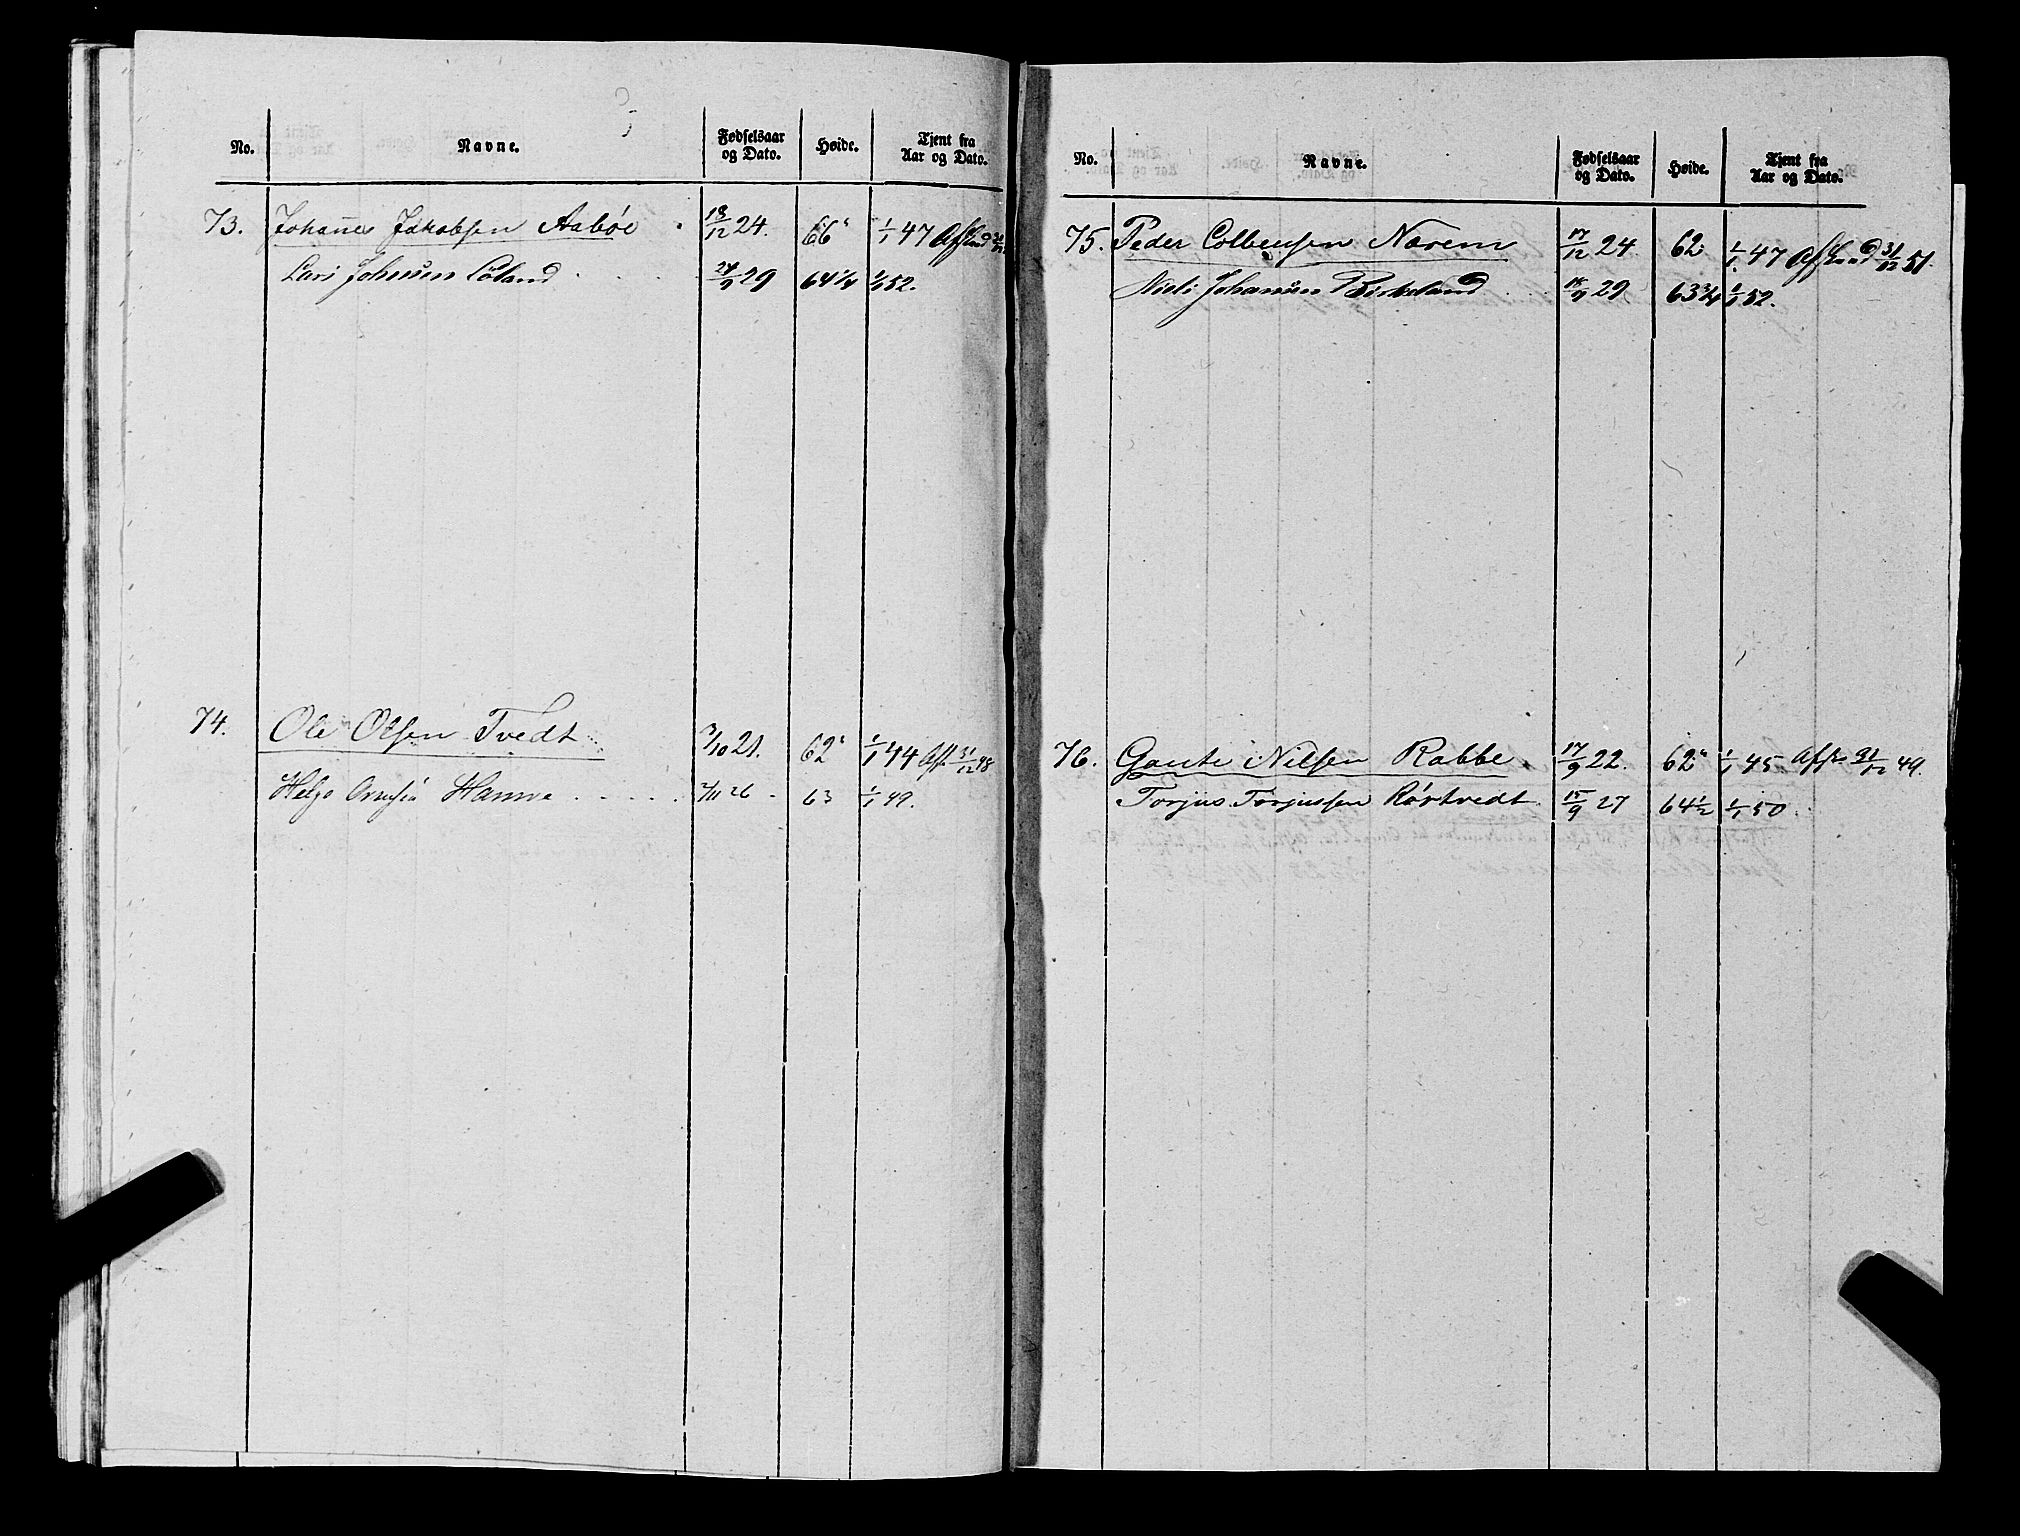 No. Navne. Fødselsaar og Dato. Høide. Tjent fra Aar og Dato.
73. Johannes Jakobsen Aabøe 18/12 24. 66" 1/1 47 Afskd 31/12
Lars Johnsen Løland 24/9 29 64 1/4 1/1 52.
74. Ole Olsen Tvedt 7/10 21. 62" 1/1 44 Afsk 31/12 48
Helge 7/11 26 63 1/1 49.
No. Navne. Fødselsaar og Dato. Høide. Tjent fra Aar og Dato.
75. Peder Colbensen Narem 17/12 24 62 1/1 47 Afskeed 31/12 51.
Niels Johansen Birkeland 18/9 29 63 3/4 1/1 52.
76. Gaute Nilsen Rabbe 17/9 22. 62" 1/1 45 Afsk 31/12 49.
Torjus Torjussen Rörtvedt 15/9 27 64 1/2 1/1 50.